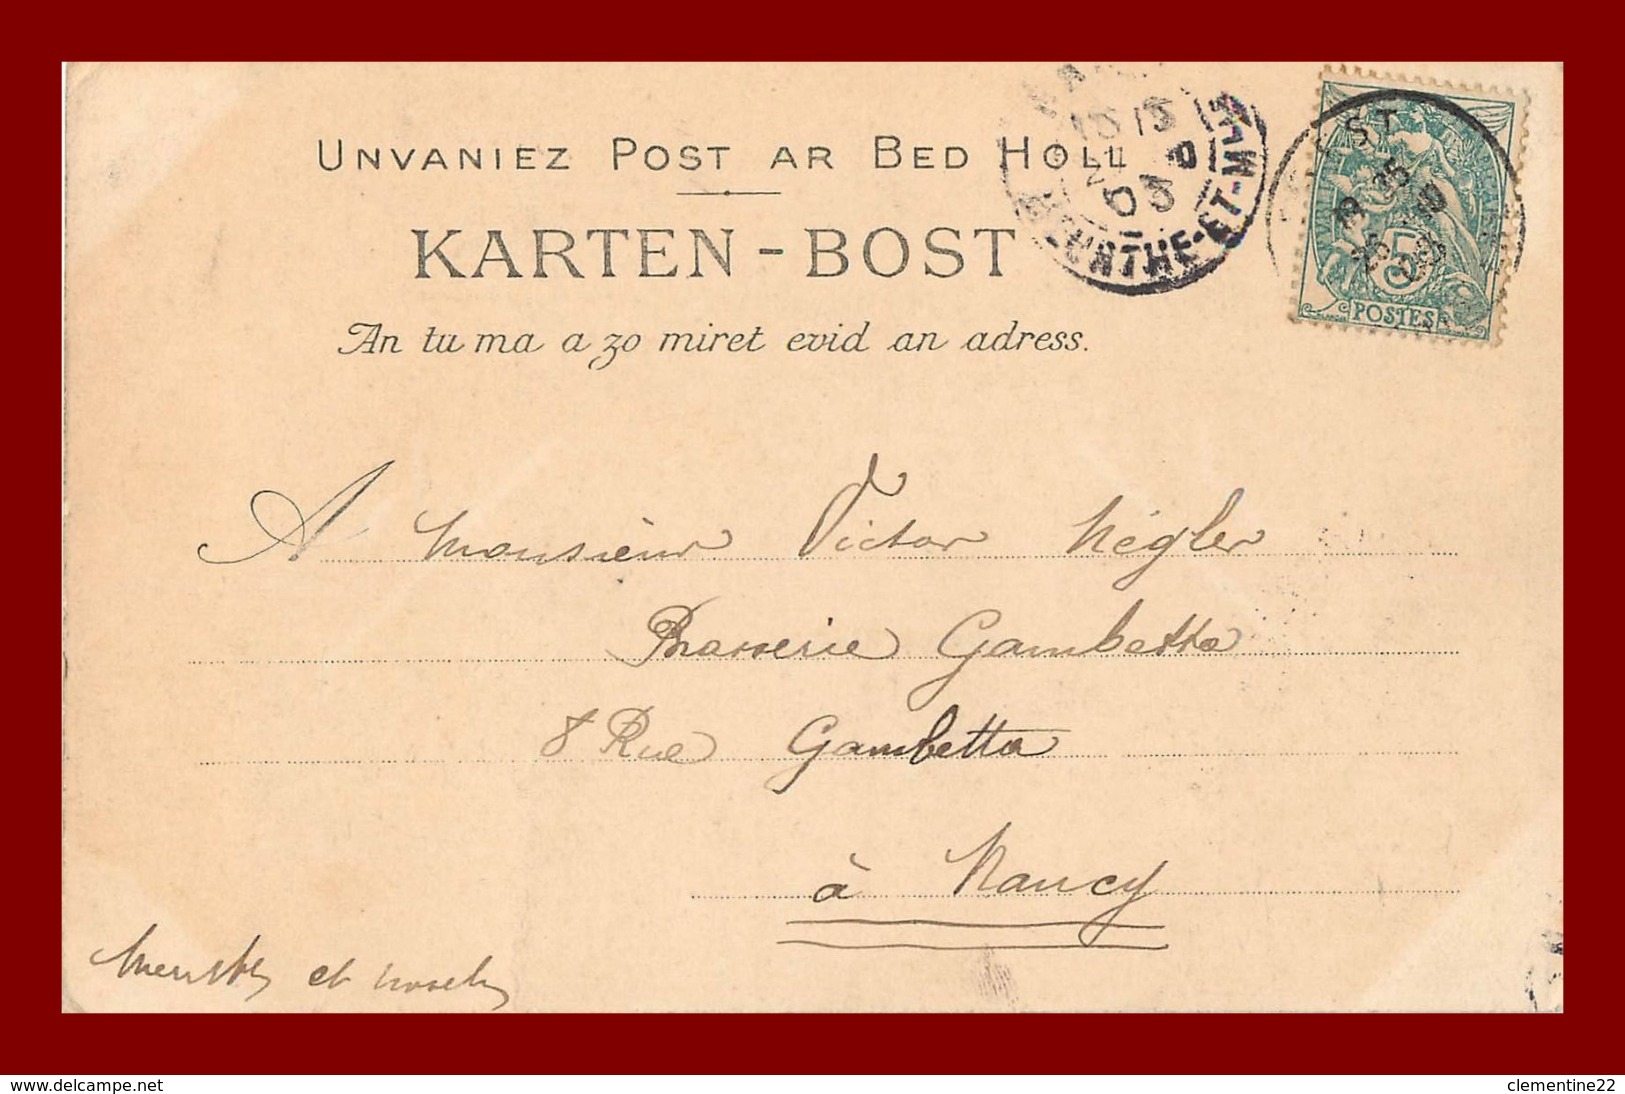 UNVANIEZ POST AR BED HOLL
KARTEN-BOST
An tu ma a zo miret evid an adress.
A Monsieur Victor Négler
Brasserie Gambetta
8 Rue Gambetta
à Nancy
et
MEURTHE-ET-MLLE
03
5
POSTES
www.delcampe.net
clementine22